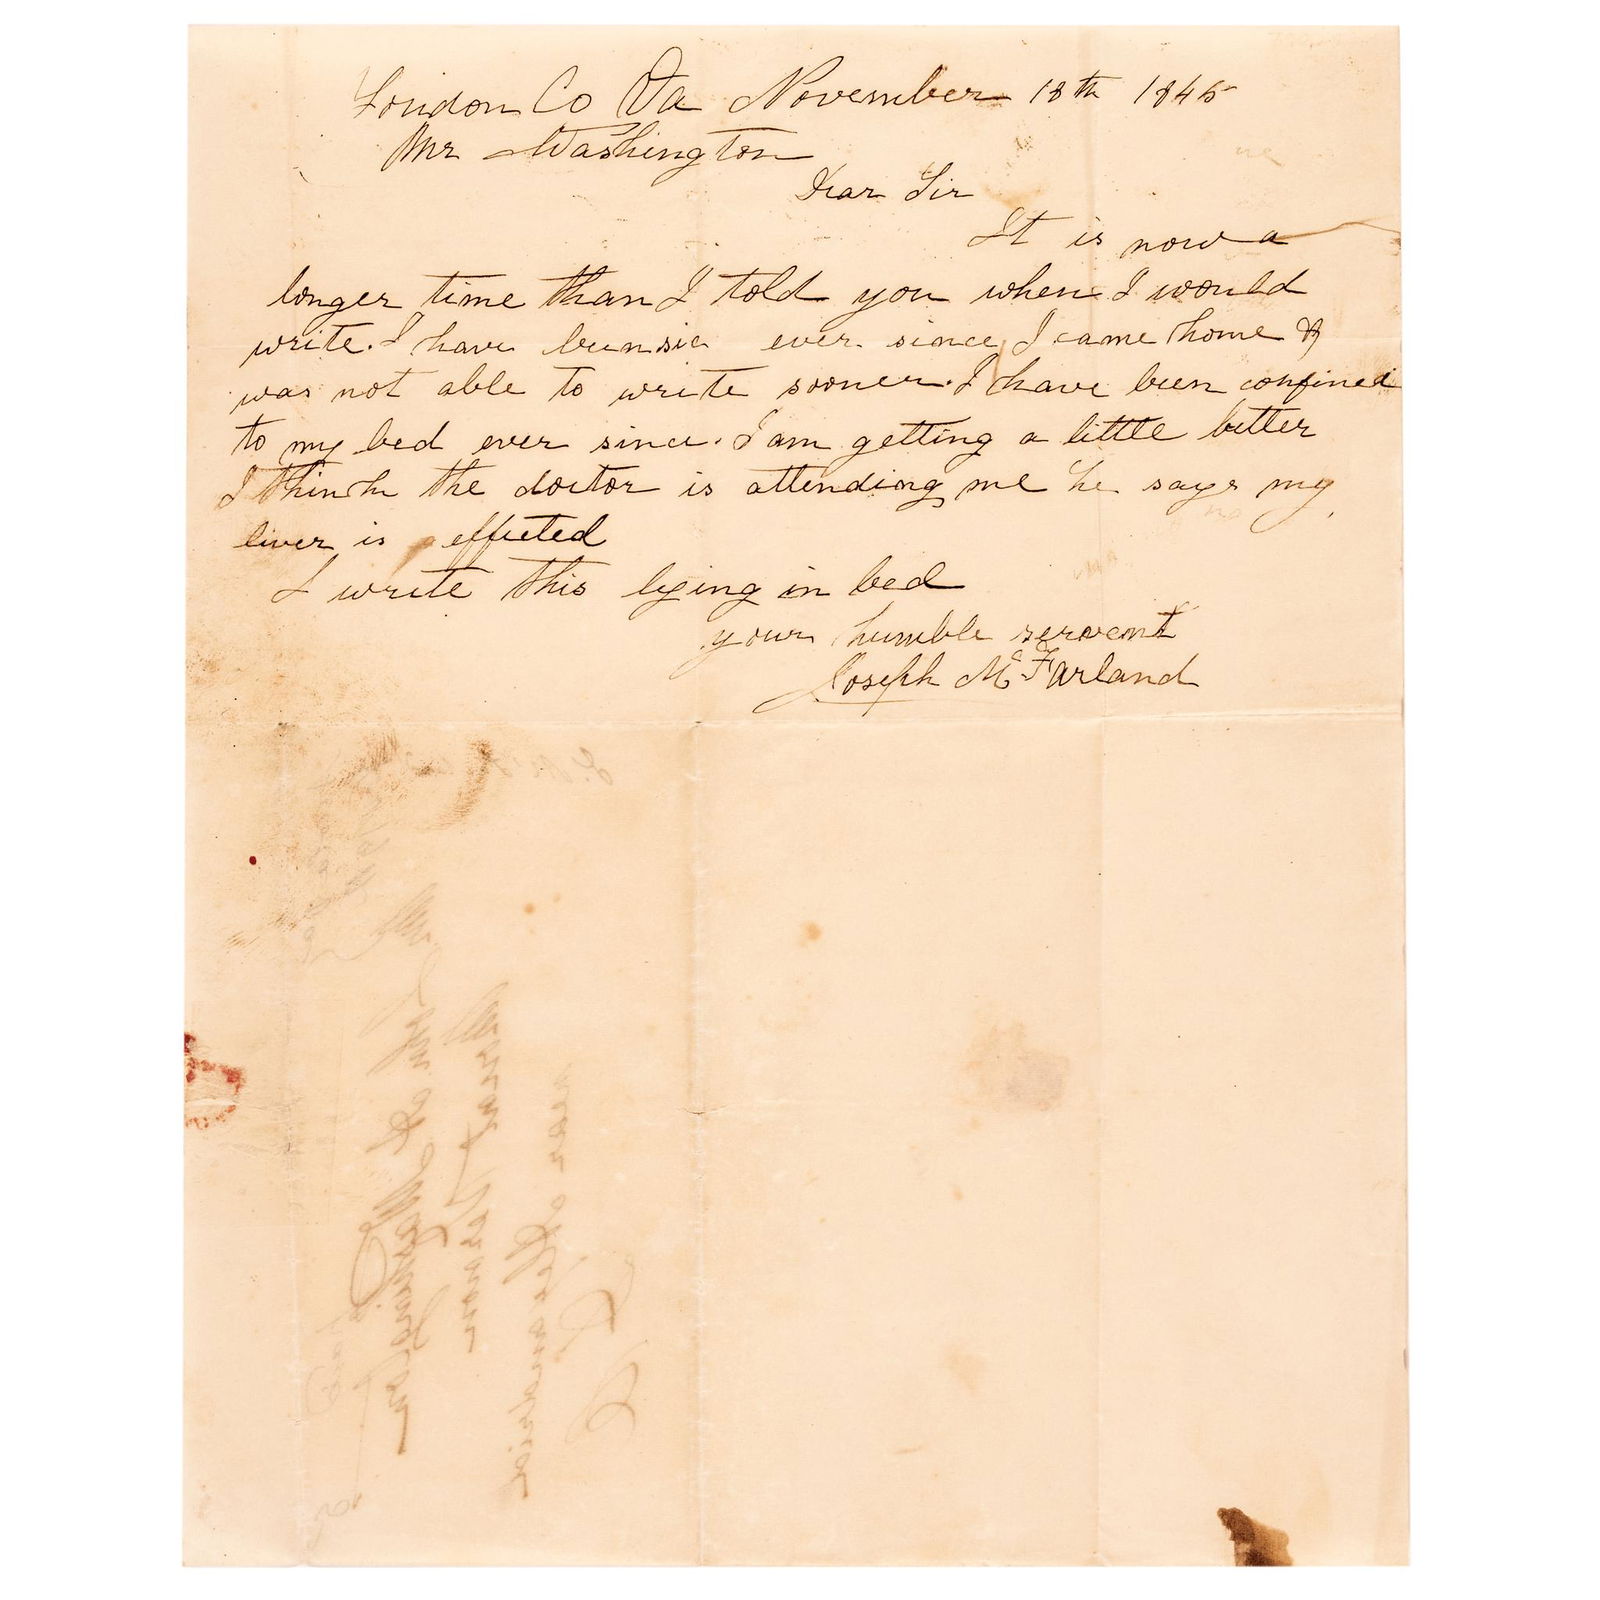 Loudon Co Va November 18th 1845
Mr Washington
Dear Sir
It is now a
longer time than I told you when I would
write. I have been sic ever since I came home &
was not able to write sooner. I have been confined
to my bed ever since. I am getting a little better
I think the doctor is attending me he says my
liver is effected
I write this lying in bed
your humble servent
Joseph McFarland
Mr John A Washington
Mount Vernon
near Alexandria
D C